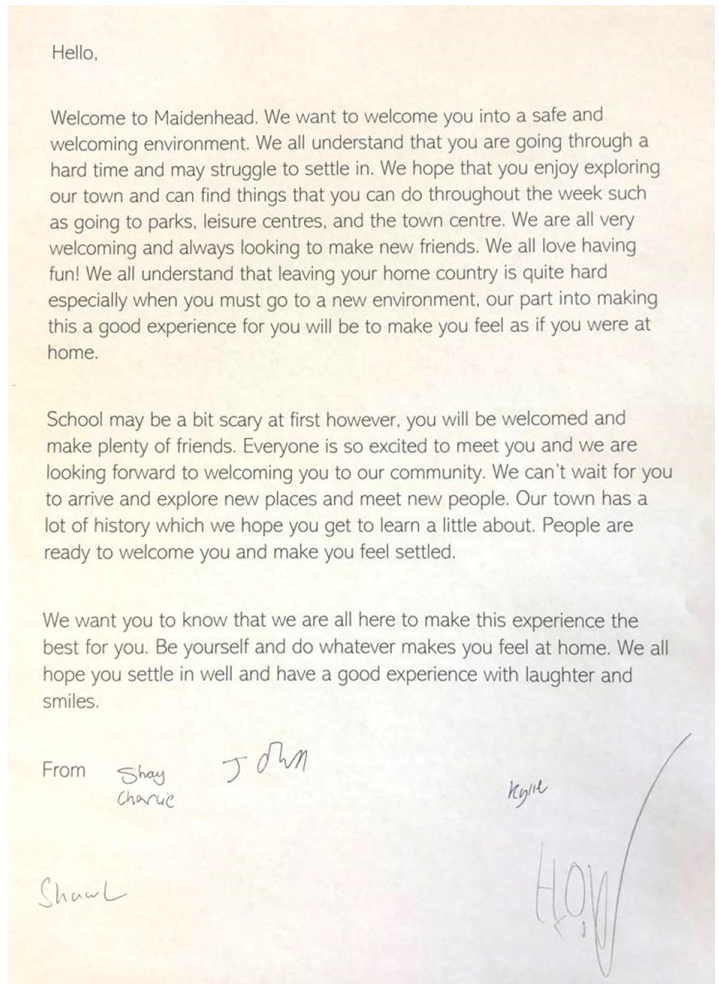 Hello,
Welcome to Maidenhead. We want to welcome you into a safe and
welcoming environment. We all understand that you are going through a
hard time and may struggle to settle in. We hope that you enjoy exploring
our town and can find things that you can do throughout the week such
as going to parks, leisure centres, and the town centre. We are all very
welcoming and always looking to make new friends. We all love having
fun! We all understand that leaving your home country is quite hard
especially when you must go to a new environment, our part into making
this a good experience for you will be to make you feel as if you were at
home.
School may be a bit scary at first however, you will be welcomed and
make plenty of friends. Everyone is so excited to meet you and we are
looking forward to welcoming you to our community. We can't wait for you
to arrive and explore new places and meet new people. Our town has a
lot of history which we hope you get to learn a little about. People are
ready to welcome you and make you feel settled.
We want you to know that we are all here to make this experience the
best for you. Be yourself and do whatever makes you feel at home. We all
hope you settle in well and have a good experience with laughter and
smiles.
From Shay John
Charlie Kylie